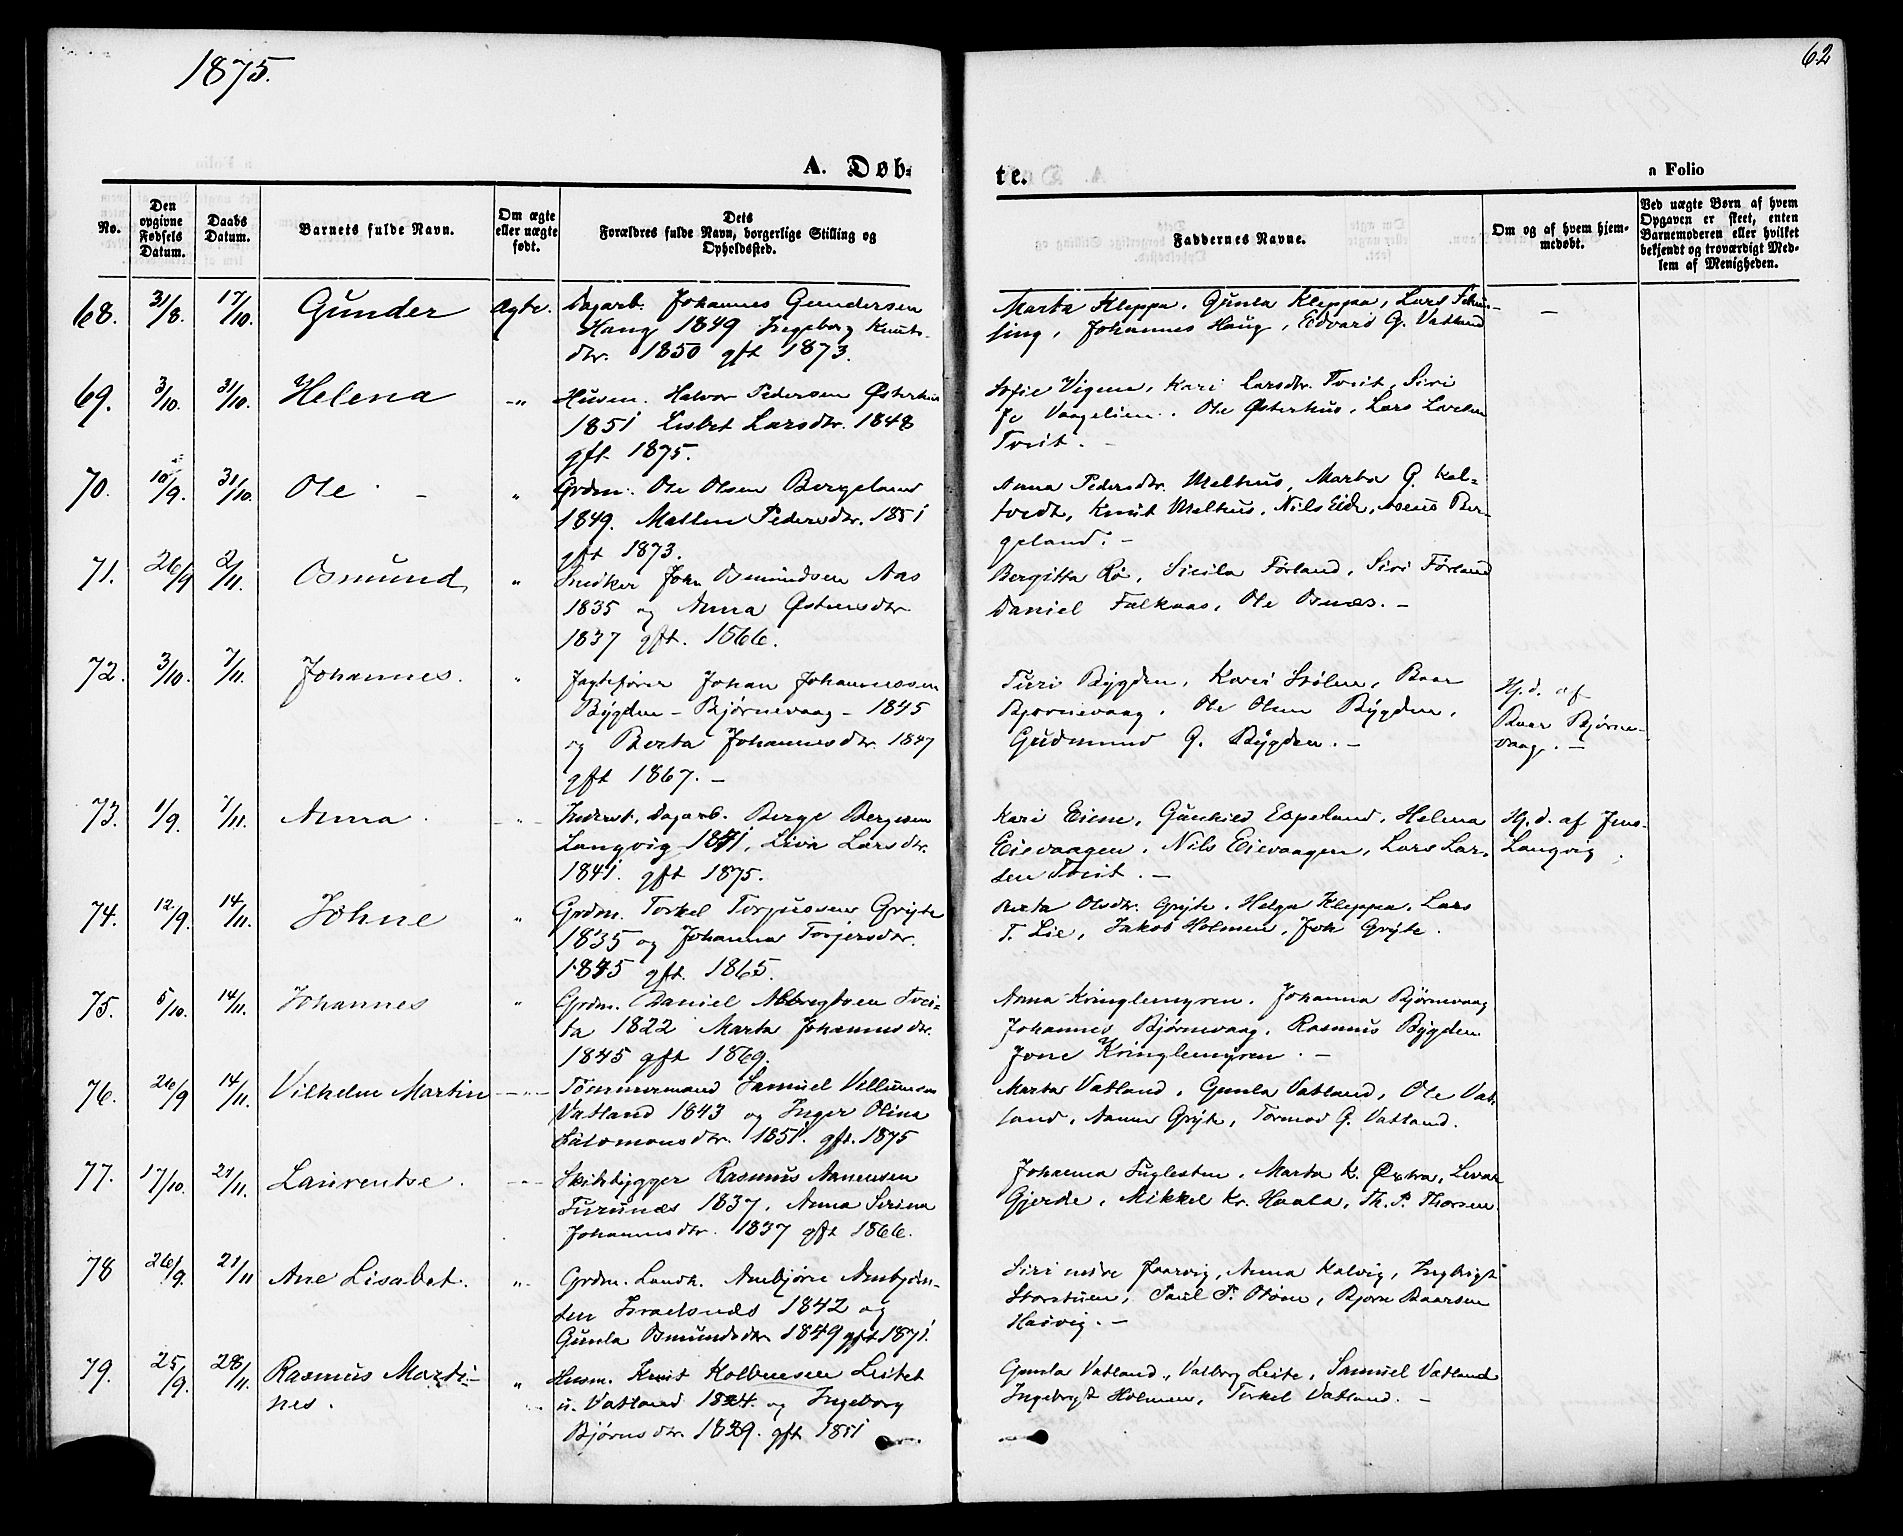 1875.
62
A. Døb-
te.
a Folio
No.
Den opgivne Fødsels Datum.
Daabs Datum.
Barnets fulde Navn.
Om ægte eller uægte født.
Dets Forældres fulde Navn, borgerlige Stilling og Opholdssted.
Faddernes Navne.
Om og af hvem hjemmedøbt.
Ved uægte Børn af hvem Opgaven er skeet, enten Barnemoderen eller hvilket bekjendt og troværdigt Medlem af Menigheden.
68. 31/8. 17/10. Gunder Ægte. Dagarb. Johannes Gundersen
Haug 1849 Ingeborg Knuts-
dtr. 1850 gft 1873.
Marta Kleppa, Gunla Kleppa, Lars
ling, Johannes Haug, Edvard G. Vatland
–
69. 3/10. 31/10. Helena –"– Husm. Halvor Pedersen Østerhus
1851 Lisbet Larsdtr. 1848
gft 1875.
Sofie Vigene, Kari Larsdtr. Tveit, Siri
Vaagelien. Ole Østerhus, Lars Larsen
Tveit. –
70. 10/9. 31/10. Ole – " Grdm. Ole Olsen Bergeland
1849. Mallin Pedersdtr. 1851
gft 1873.
Anna Pedersdtr. Melhus, Marta G. Kal-
tvedt, Knut Melhus, Nils Eide, Aenus Ber-
geland. –
71. 26/9 2/11. Osmund " Snikker John Osmundsen Aas
1835 og Anna Østensdtr.
1837 gft. 1866.
Bergitta Rø, Sicila Førland, Siri Førland
Daniel Falknes, Ole Osnæs. –
72. 3/10. 7/11. Johannes. " Jagtefører Johan Johannessen
Bygden – Bjørnevaag – 1845
og Berta Johannesdtr. 1847
gft 1867. –
Turi Bygden, Kari Stølen, Baar
Bjørnevaag, Ole Olsen Bygden,
Gudmund G. Bygden. –
Hj.d. af
Baar Bjørne-
vaag. –
73. 1/9. 7/11. Anna. " Inderst, Dagarb. Berge Bergesen
Langvig 1841, Liva Larsdtr.
1841. gft 1875.
Kari Eiene, Gunhild Espeland, Helena
Eievaagen, Nils Eievaagen, Lars Lar-
sen Tveit. –
Hj.d. af Jens
Langvig.
74. 12/9. 14/11. Johne " Grdm. Torkel Torjussen Gryte
1835 og Johanna Torjersdtr.
1845 gft. 1865.
Berta Olsdtr. Gryte, Helga Kleppa, Lars
T. Lie, Jakob Holmen, Joh Gryte.
75. 5/10. 14/11. Johannes " Grdm. Daniel Abbregtsen Tvei-
ta 1822 Marta Johannesdtr.
1845 gft 1869.
Anna Kringlemyren, Johanna Bjørnevaag
Johannes Bjørnevaag, Rasmus Bygden
Jone Kringlemyren. –
76. 26/9 14/11. Vilhelm Martin –"– Tømmermand Samuel Vellumsen
Vatland 1843 og Inger Olina
Salomonsdtr. 1851. gft. 1875
Marta Vatland, Gunla Vatland, Ole Vat-
land, Aanen Gryte, Tormod G. Vatland.
77. 17/10. 21/11. Laurentse. –"– Skibbygger Rasmus Aanensen
Furunæs 1837, Anna Serina
Johannesdtr. 1837 gft 1866.
Johanna Fuglesten, Marta K. Øxtra,
Gjerde, Mikkel Kr. Haala, Th. P. Thorsen.
78 26/9. 21/11 Ane Lisabet. " Grdm. Landh. Ambjørn Ambjørn-
sen Israelsnæs 1842 og
Gunla Osmundsdtr 1849 gft 1871.
Siri nedre Haarvig, Anna Kalvig, Ingbrigt
Storstuen, Paul P. Støen, Bjørn Baarsen
Haavig. –
79. 25/9. 28/11. Rasmus Marti-
nes. " Husm. Knut Kolbensen Leitet
u. Vatland 1824. og Ingeborg
Bjørnsdtr. 1829. gft 1851
Gunla Vatland, Valborg Leite, Samuel Vatland
Ingebregt Holmen, Torkel Vatland. –